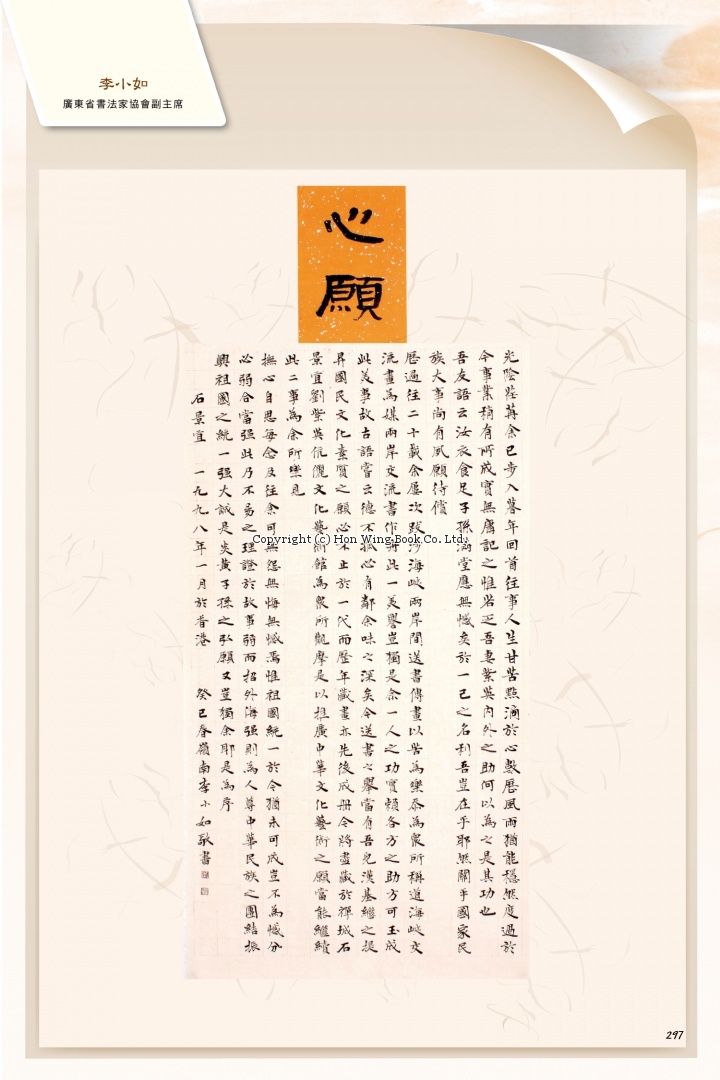 李小如
廣東省書法家協會副主席
心願
光陰荏苒余已步入暮年回首往事人生甘苦點滴於心數歷風雨猶能穩然度過於
今事業稍有所成實無庸記之惟若乏吾妻紫英內外之助何以為之是其功也
吾友語云汝衣食足子孫滿堂應無憾矣於一己之名利吾豈在乎耶然關乎國家民
族大事尚有夙願待償
歷過往二十載余屢次跋涉海峽兩岸間送書傳畫以苦為樂忝為眾所稱道海峽交
流畫為媒兩岸交流書作舟此一美譽豈獨是余一人之功實賴各方之助方可玉成
此美事故古語嘗云德不孤必有鄰余味之深矣今送書之舉當有吾兒漢基繼之提
昇國民文化素質之願必不止於一代而歷年藏畫亦先後成冊令將盡藏於禪城石
景宜劉紫英伉儷文化藝術館為眾所觀摩是以推廣中華文化藝術之願當能繼續
此二事為余所樂見
撫心自思每念及往余可無怨無悔無憾焉惟祖國統一於今猶未可成豈不為憾分
必弱合當强此乃不易之理證於故事弱而招外海强則為人尊中華民族之團結振
興祖國之統一强大誠是炎黃子孫之弘願又豈獨余耶是為序
石景宜 一九九八年一月於香港 癸巳春嶺南李小如敬書
Copyright (c) Hon Wing Book Co. Ltd.
297